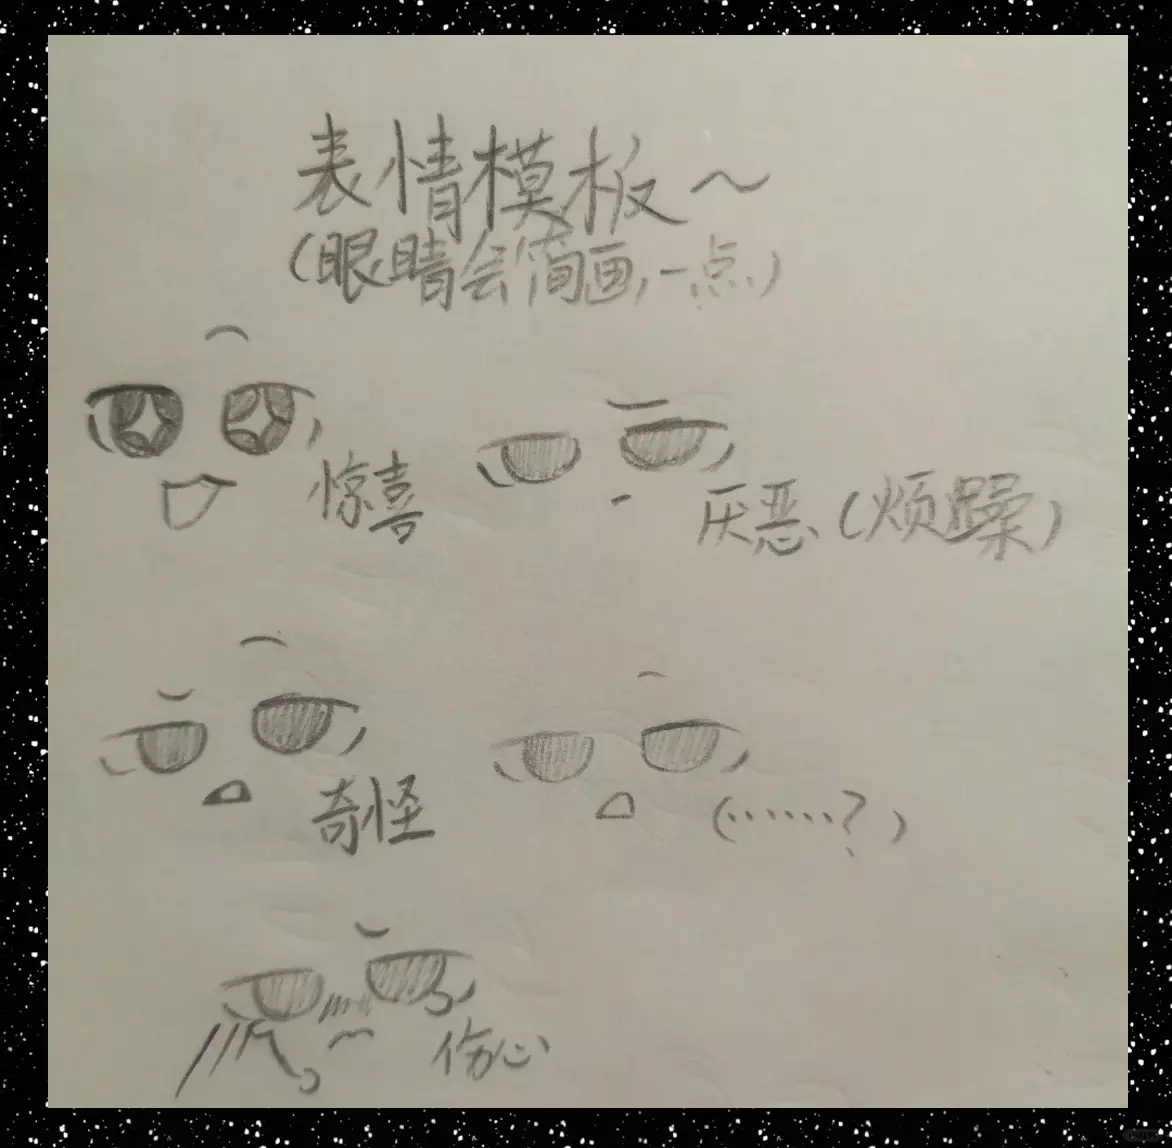 表情模板~
(眼睛会简画一点)
惊喜
厌恶(烦躁)
奇怪
(……?)
伤心